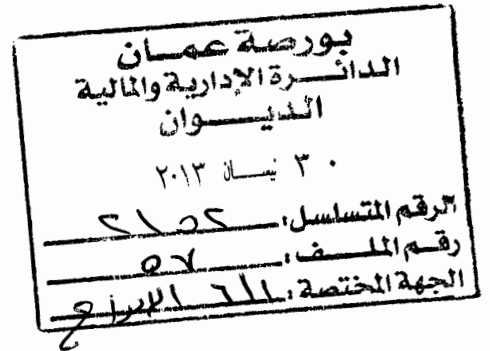 بورصة عمان
الدائرة الإدارية والمالية
الديوان
٣٠ نيسان ٢٠١٣
الرقم المتسلسل:
رقم الملف: ٥٧
الجهة المختصة: الإدراج